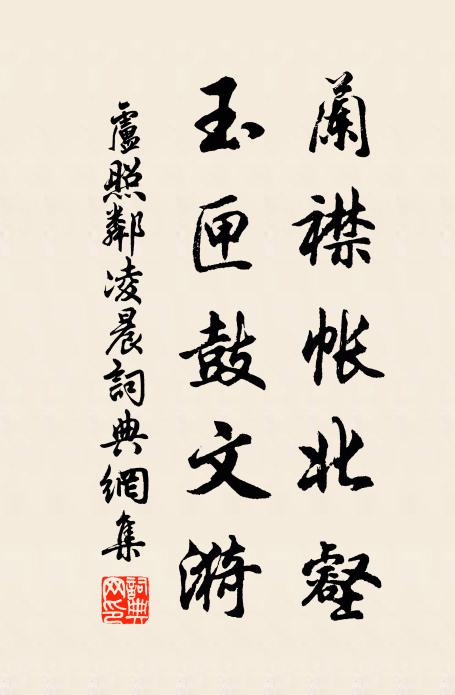 蘭襟帳北壑
玉匣鼓文漪
盧照鄰凌晨詞典網集
詞典網印